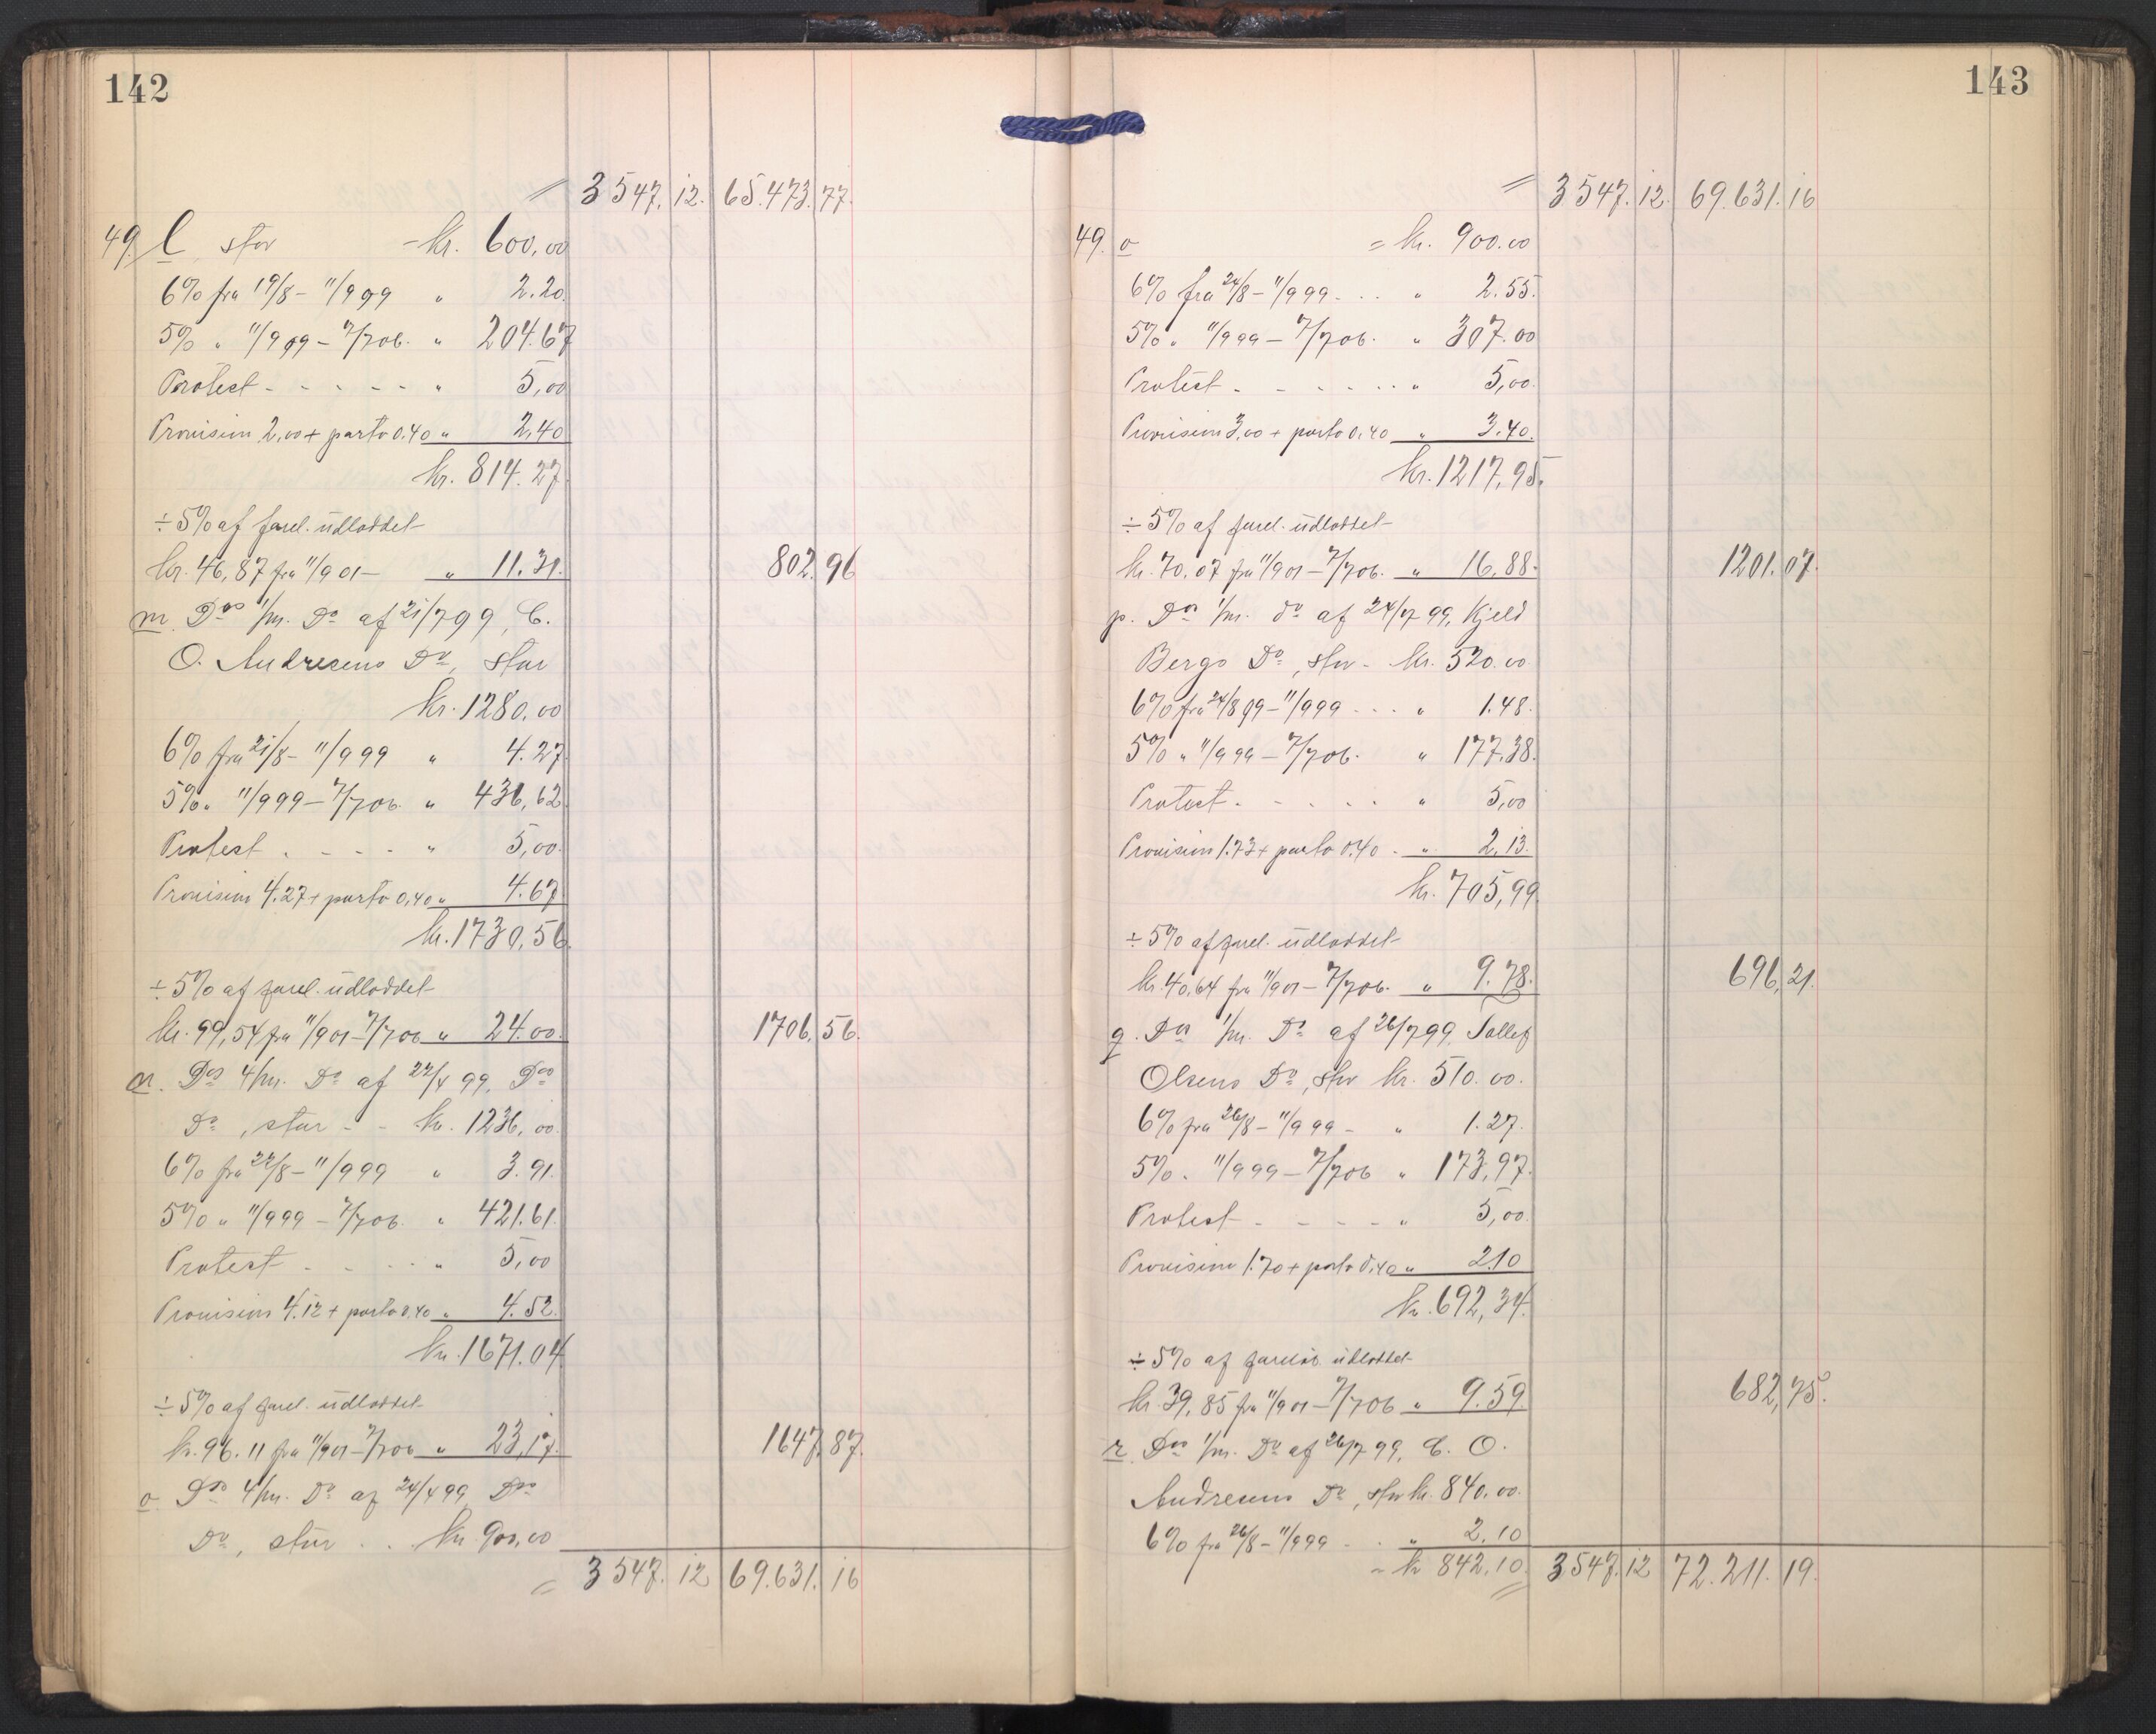 142
= 3547.12. 65.473.77.
49. l, stor - kr. 600,00
6% fra 19/8 - 11/9 99 " 2.20.
5% " 11/9 99 - 7/7 06. " 204.67
Protest - - - - - " 5,00
Provision 2,00 + porto 0.40 " 2,40
kr. 814.27
÷ 5% af forel. üdloddet
kr. 46,87 fra 11/9 01 - " 11.31. 802.96
m. Dos 1/m. Do af 21/7 99, C.
O. Andresens Do, stor
kr. 1280,00
6% fra 21/8 - 11/9 99 " 4.27
5% " 11/9 99 - 7/7 06. " 436,62
Protest . - - - - " 5,00.
Provision 4.27 + porto 0,40 " 4.67
kr. 1730,56
÷ 5% af forel. üdloddet
kr. 99,54 fra 11/9 01 - 7/7 06 " 24.00. 1706.56.
n. Dos 4/m. Do af 22/4 99, Dos
Do, stor - - kr. 1236,00.
6% fra 22/8 - 11/9 99 " 3.91.
5% " 11/9 99 - 7/7 06. " 421.61.
Protest . - - - - " 5,00
Provision 4.12 + porto 0,40 " 4.52.
kr. 1671.04
÷ 5% af forel. üdloddet
kr. 96.11 fra 11/9 01 - 7/7 06 " 23,17. 1647.87.
o. Dos 4/m. Do af 24/4 99, Dos
Do, stor . . . kr 900,00
= 3547.12 69.631.16
143
= 3547.12. 69.631.16
49. o = kr. 900.00
6% fra 24/8 - 11/9 99 - . . " 2.55.
5% " 11/9 99 - 7/7 06. " 307.00
Protest . - - - - . . " 5,00.
Provision 3,00 + porto 0,40 " 3.40.
kr. 1217,95.
÷ 5% af forel. üdloddet
kr. 70,07 fra 11/9 01 - 7/7 06. " 16,88. 1201.07.
p. Dos 1/m. do af 24/7 99, Kjeld
Bergs Do, stor - kr. 520.00
6% fra 24/8 99 - 11/9 99 - . . " 1.48.
5% " 11/9 99 - 7/7 06. " 177.38.
Protest . - - - - " 5,00
Provision 1.73 + porto 0.40 - " 2,13.
kr. 705,99.
÷ 5% af forel. üdloddet
kr. 40,64 fra 11/9 01 - 7/7 06. " 9.78. 696,21.
q. Dos 1/m. Do af 26/7 99, Sallef
Olsens Do, stor kr. 510.00.
6% fra 26/8 - 11/9 99 - " 1.27.
5% . 11/9 99 - 7/7 06 " 173,97.
Protest - - - - - " 5,00.
Provision 1.70 + porto 0,40 " 2.10
kr. 692,34.
÷ 5% af forelöb. üdloddet
kr. 39,85 fra 11/9 01 - 7/7 06 " 9.59. 682,75.
r. Dos 1/m. Do af 26/7 99, C. O.
Andresens Do, stor kr. 840.00.
6% fra 26/8 - 11/9 99 - . " 2.10
= kr 842.10. 3547.12 72.211.19.